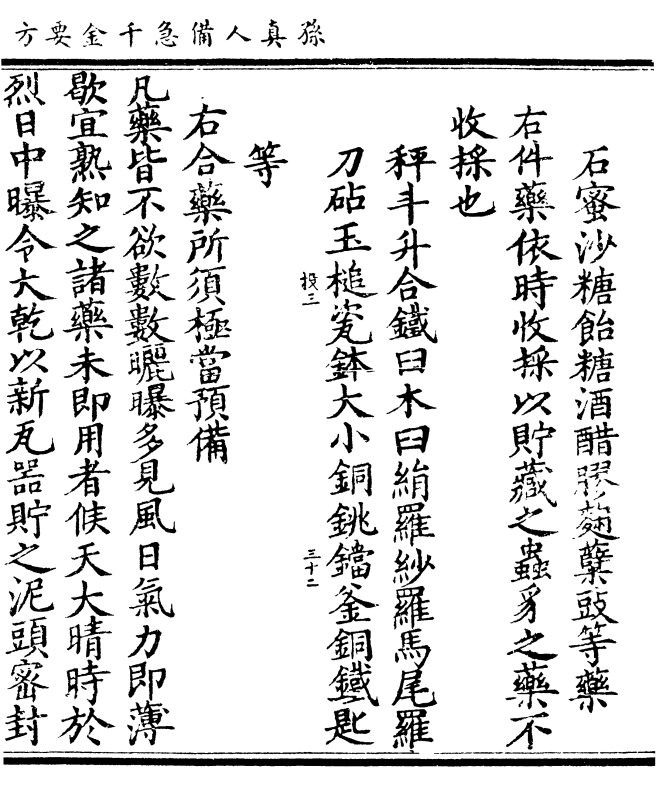 孫真人備急千金要方
石蜜沙糖飴糖酒醋膠麴蘗豉等藥
右件藥依時收採以貯藏之蟲豸之藥不
收採也
秤斗升合鐵臼木臼絹羅紗羅馬尾羅
刀砧玉槌瓷鉢大小銅銚鐺釜銅鐵匙
投三
三十二
等
右合藥所須極當預備
凡藥皆不欲數數曬曝多見風日氣力即薄
歇宜熟知之諸藥未即用者候天大晴時於
烈日中曝令大乾以新瓦器貯之泥頭密封